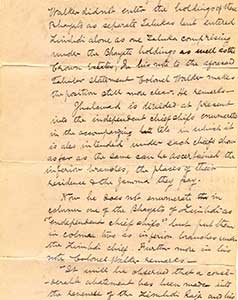 Walker didn't enter the holdings of these
Bhayats as separate Talukas but entered
Limbdi alone as one Taluka comprising
under the Bhayats holdings as well as the
Crown Estates. In his note to the
Tabular statement Colonel Walker makes
the position still more clear. He remarks—
is divided at present
into the independent chiefships enumerated
in the accompanying in which it
is also intended under each chief's share
as far as the same can be ascertained the
inferior branches, the places of their
residence & the Jumma they pay.
Now he does not enumerate in
column one of the Bhayats of Limbdi as
"Independent chiefships" but put them
in column two as inferior branches under
the Limbdi chief. Further more in his
note Colonel Walker remarks—
"It will be observed that a consi-
derable abatement has been made in
the revenues of the Limbdi Raja and his